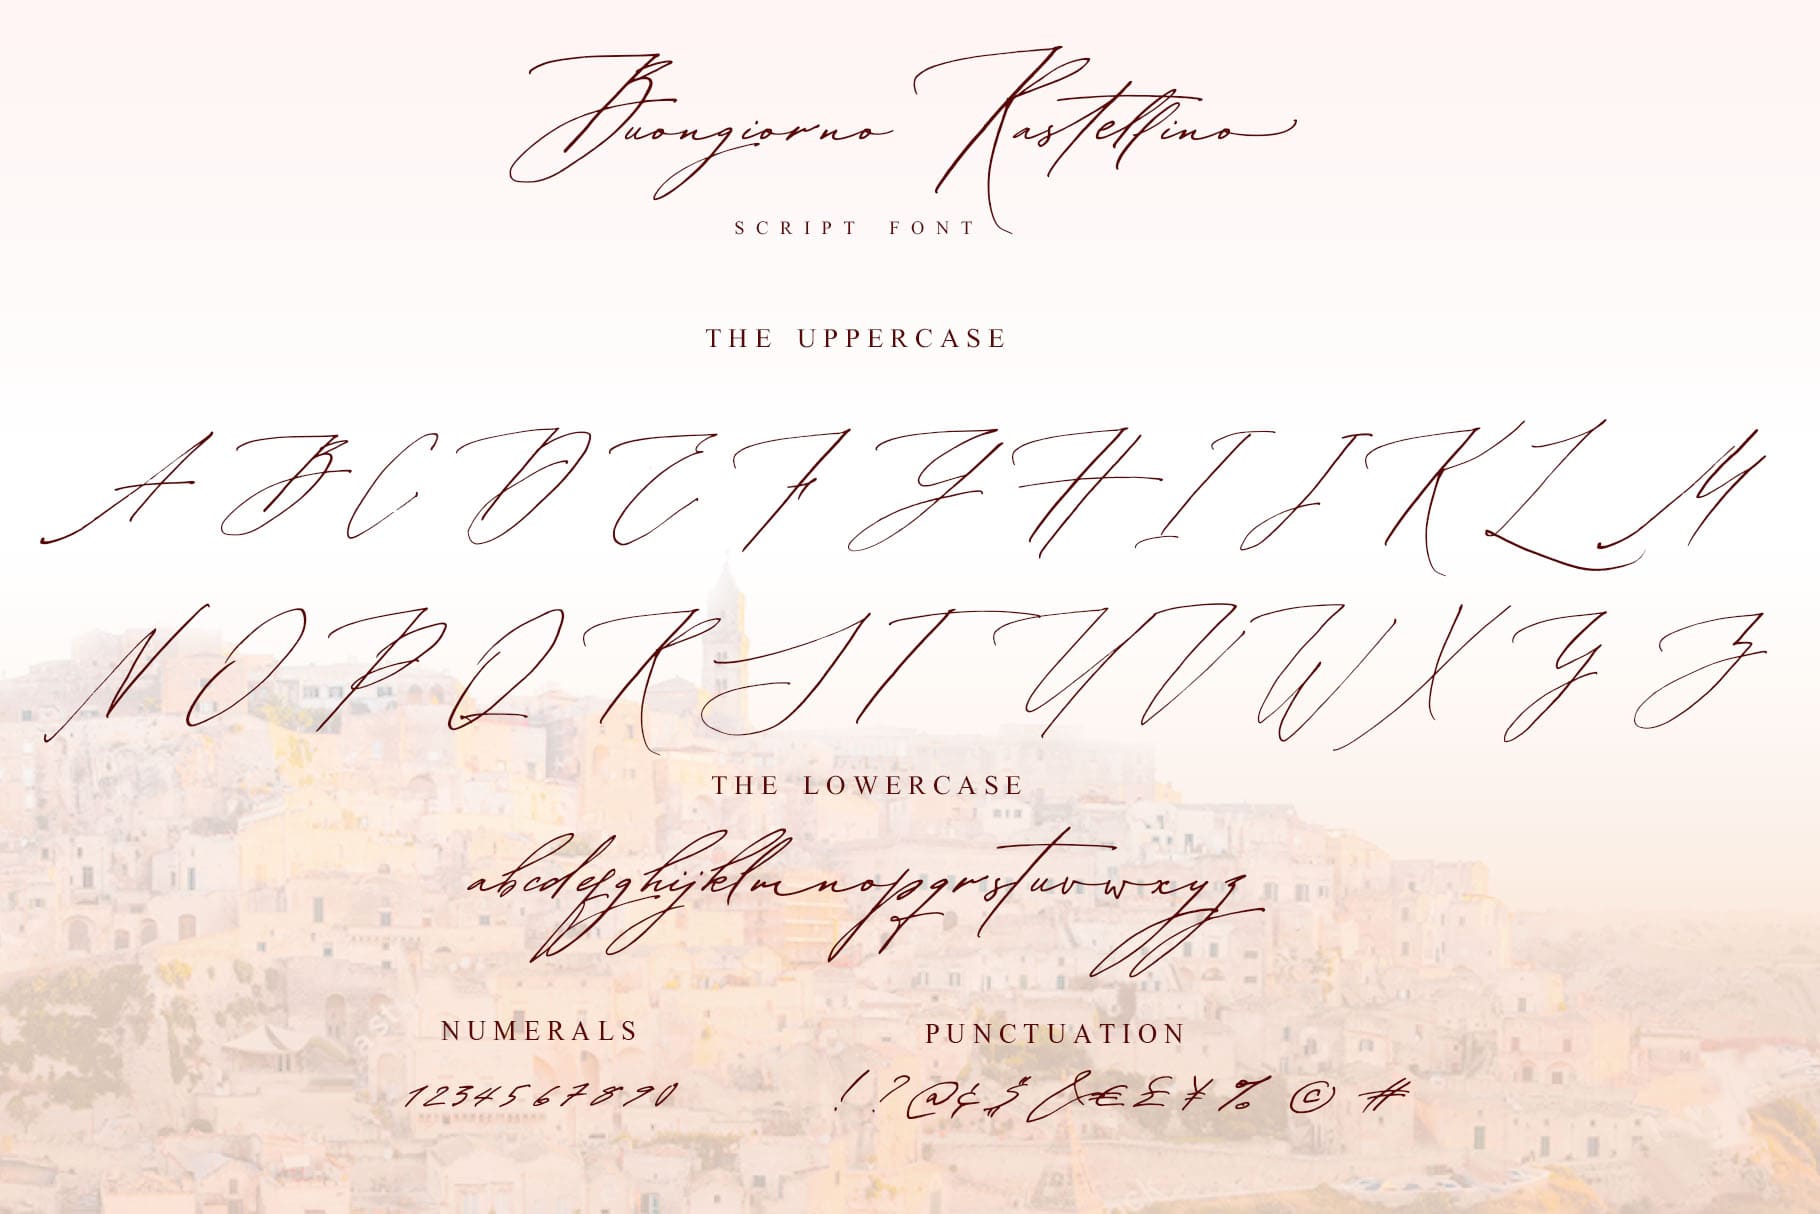 Buongiorno Rastellino
SCRIPT FONT
THE UPPERCASE
A B C D E F G H I J K L M
N O P Q R S T U V W X Y Z
THE LOWERCASE
abcdefghijklmnopqrstuvwxyz
NUMERALS
PUNCTUATION
1234567890
!?@¢$&€£¥% © #